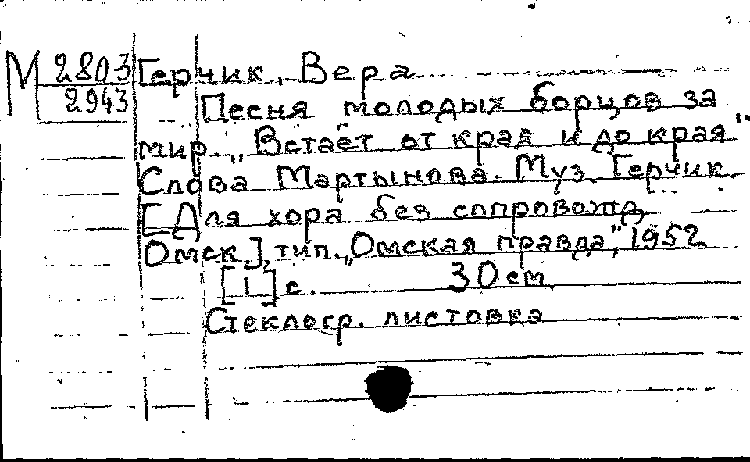 М 2803 Герчик, Вера
2943 Песня молодых борцов за
мир. „Встаёт от края и до края".
Слова Мартынова. Муз. Герчик.
[Для хора без сопровожд
Омск.], тип. „Омская правда", 1952
[1] с. 30 см
Стеклогр. листовка